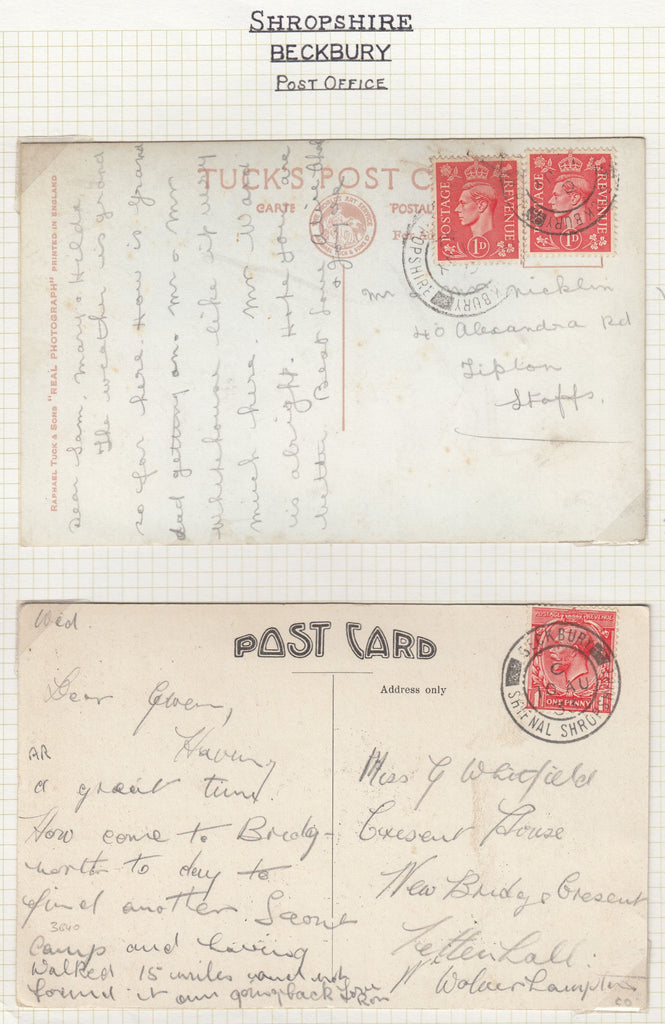 SHROPSHIRE
BECKBURY
POST OFFICE
TUCK'S POST C
CARTE
POSTAL
RAPHAEL TUCK & SONS "REAL PHOTOGRAPH" PRINTED IN ENGLAND
Dear Sam, Mary & Hilda
The weather is grand
so far here. How is Grand
dad getting on. Mr & Mr
Whitehouse like it very
much here. Mr W and
is alright. Hope you are
better. Best Love
POSTAGE REVENUE
1D
POSTAGE REVENUE
1D
OPSHIRE
KBURY
KBURY
Mr
Micklin
40 Alexandra Rd
Tipton
Staffs.
Wed.
POST CARD
Address only
Dear Gwen,
Having
AR
a great time.
How come to Bridg-
north to day to
find another Scout
3640
camp and having
walked 15 miles
found it am going back
ONE PENNY
BECKBURY
C
16 AU
SHIFNAL SHROP
Miss G Whitfield
Cresent House
New Bridge Cresent
Tettenhall.
Wolverhampton